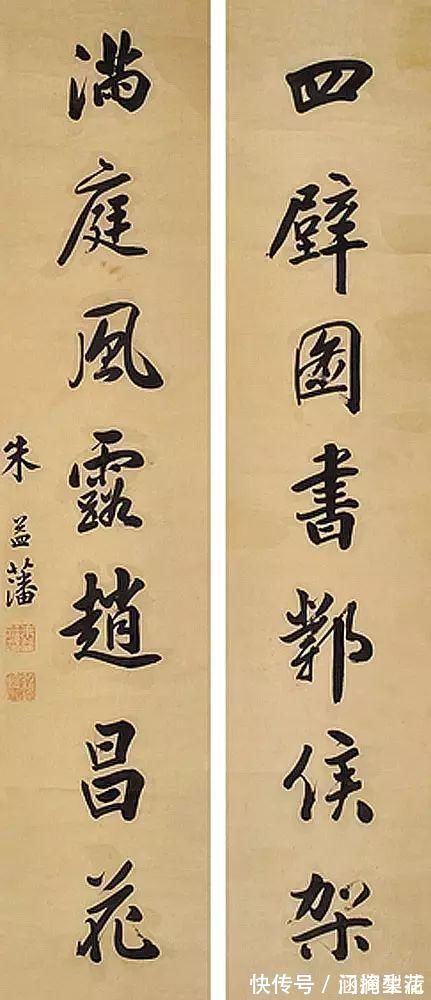 四壁圖書鄴侯架
滿庭風露趙昌花
朱益藩
快传号／涵